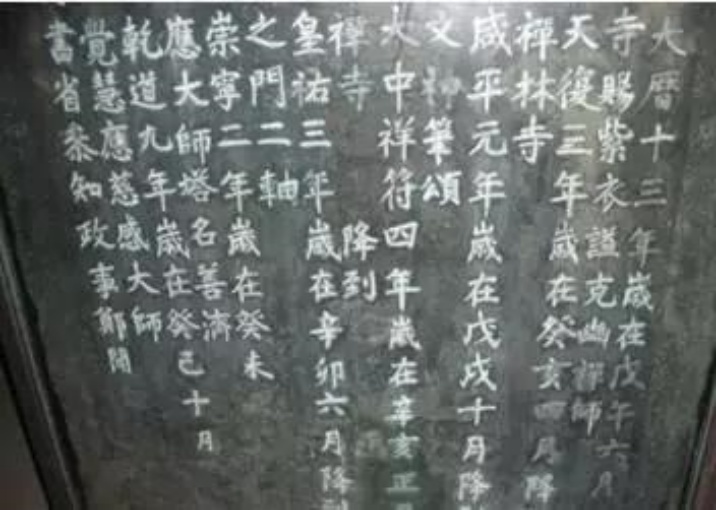 大曆十三年歲在戊午六月
寺賜紫衣謚克幽禪師
天復三年歲在癸亥四月降
禪林寺
咸平元年歲在戊戌十月降到
文 筆頌
大中祥符四年歲在辛亥正月
禪寺 降到
皇祐三年歲在辛卯六月降到
之門二軸
崇寧二年歲在癸未
應大師塔名善濟
乾道九年歲在癸巳十月
覺慧應慈感大師
書省叅知政事鄭聞